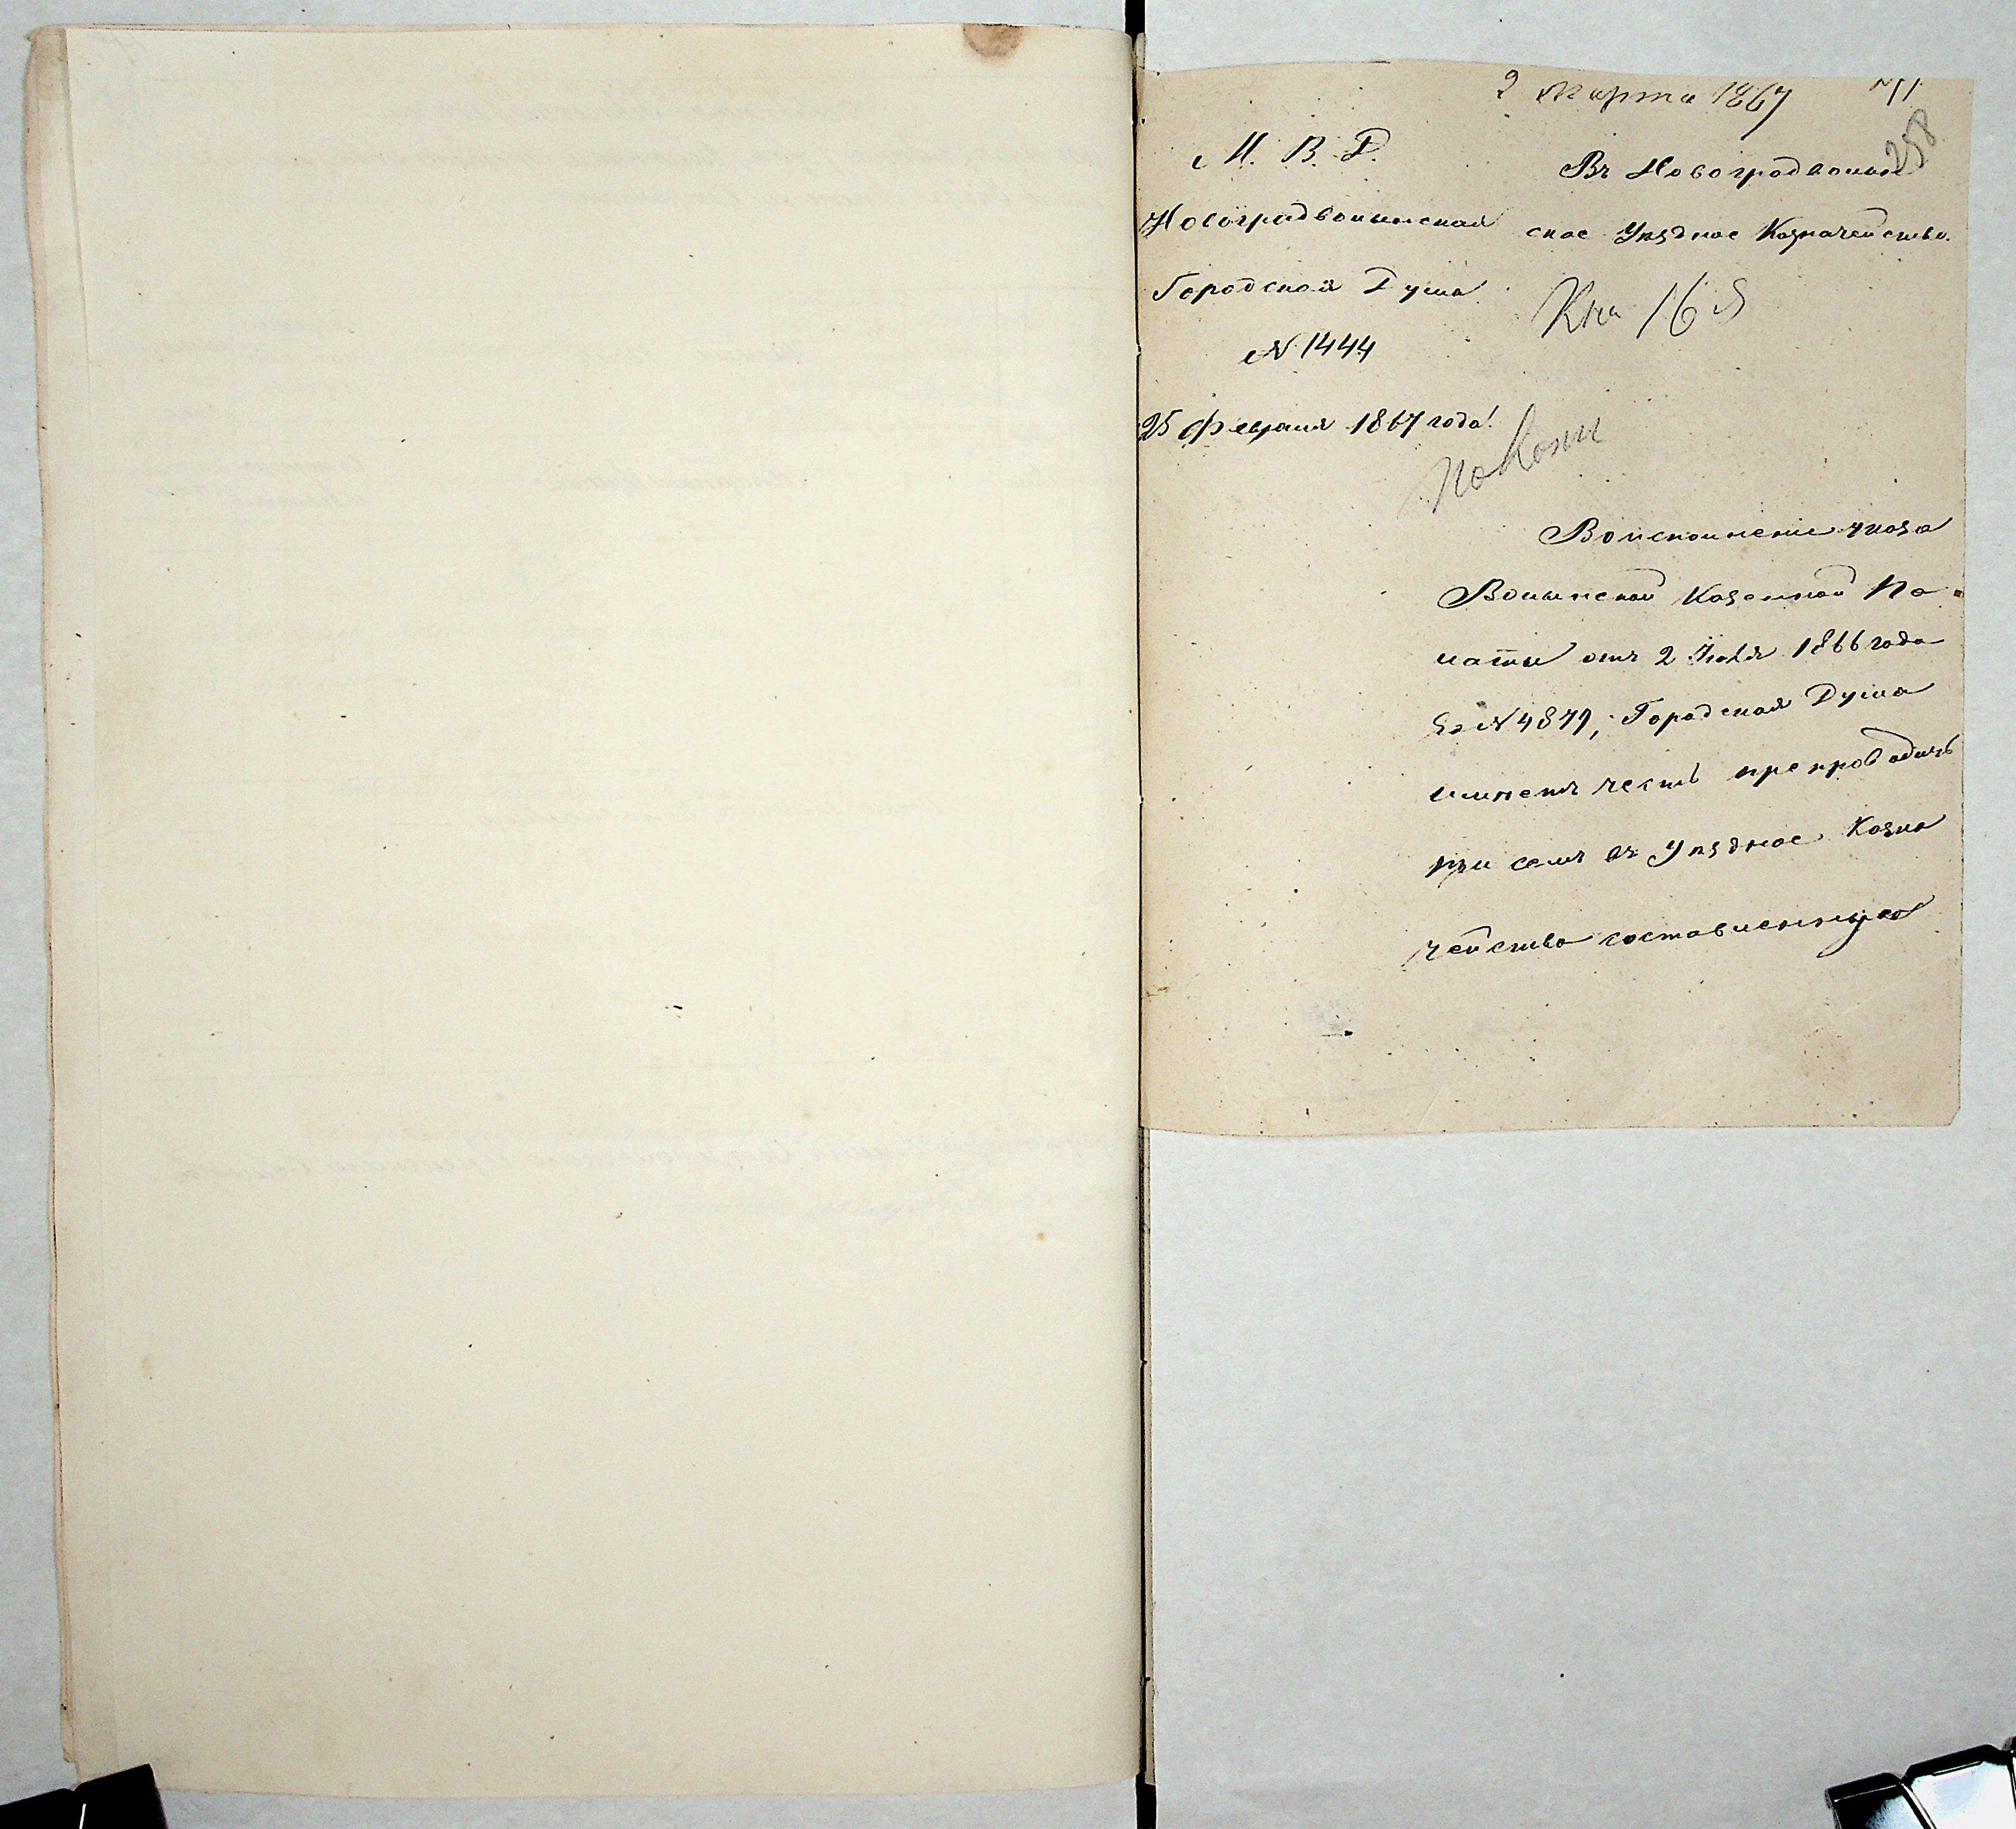 2 Марта 1867
258
М. В. Д.
Новоградволынская
Городская Дума
N 1444
25 Февраля 1867 года.
Въ Новоградволын
ское Уѣздное Казначейство.
Во исполненіе указа
Волынской Казенной Па-
латы отъ 2 Іюля 1866 года
за N 4879, Городская Дума
имѣетъ честь препроводить
при семъ въ Уѣздное Казна
чейство составленную